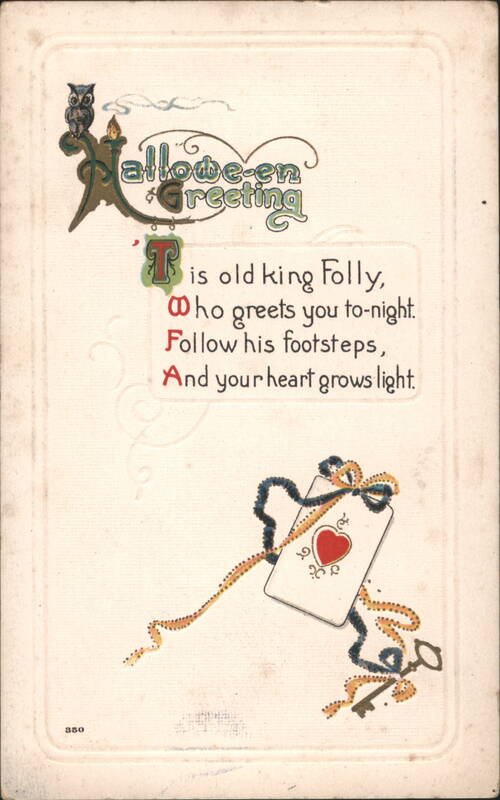 Hallowe-en
Greeting
'Tis old king Folly,
Who greets you to-night.
Follow his footsteps,
And your heart grows light.
350